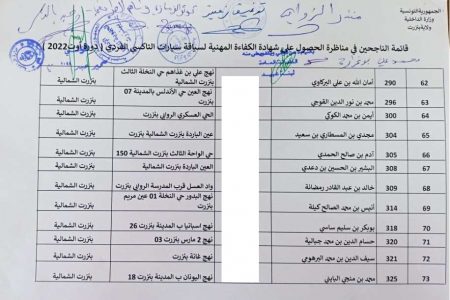 الجمهورية التونسية
وزارة الداخلية
ولاية بنزرت
قائمة الناجحين في مناظرة الحصول على شهادة الكفاءة المهنية لسياقة سيارات التاكسي الفردي ( دورة أوت 2022)
62 290 أمان الله بن علي البركاوي نهج علي بن غذاهم حي النخلة الثالث بنزرت بنزرت الشمالية
63 296 محمد بن نور الدين القوجي نهج العين حي الأندلس بالمدينة 07 بنزرت بنزرت الشمالية
64 300 أيمن بن محمد الكوكي الحي العسكري الروابي بنزرت بنزرت الشمالية
65 304 مجدي بن المسطاري بن سعيد عين الباردة بنزرت الشمالية بنزرت بنزرت الشمالية
66 305 آدم بن صالح الحمدي حي الواحة الثالث بنزرت الشمالية 150 بنزرت الشمالية
67 308 البشير بن الحسين بن دعدي العين الباردة بنزرت بنزرت الشمالية
68 309 خالد بن عبد القادر رمضانة واد العسل قرب المدرسة الروابي بنزرت بنزرت الشمالية
69 314 أنيس بن محمد الصالح كيلة نهج البدور حي النخلة 01 عين مريم بنزرت بنزرت الشمالية
70 318 بوبكر بن سليم ساسي نهج اسبانيا ب المدينة بنزرت 26 بنزرت الشمالية
71 320 حسام الدين بن محمد جبالية نهج 2 مارس بنزرت 03 بنزرت الشمالية
72 323 سيف الدين بن محمد البرهومي نهج غانة بنزرت بنزرت الشمالية
73 325 محمد بن منجي اليابني نهج اليونان ب المدينة بنزرت 18 بنزرت الشمالية